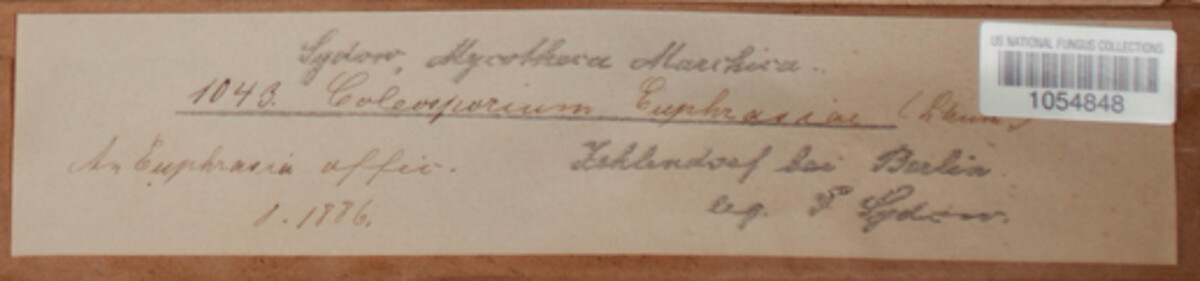 Sydow, Mycotheca Marchica.
1043. Coleosporium Euphrasiae (Schum.)
US NATIONAL FUNGUS COLLECTIONS
1054848
An Euphrasia offic.
Zehlendorf bei Berlin
8. 1886.
leg. P Sydow.